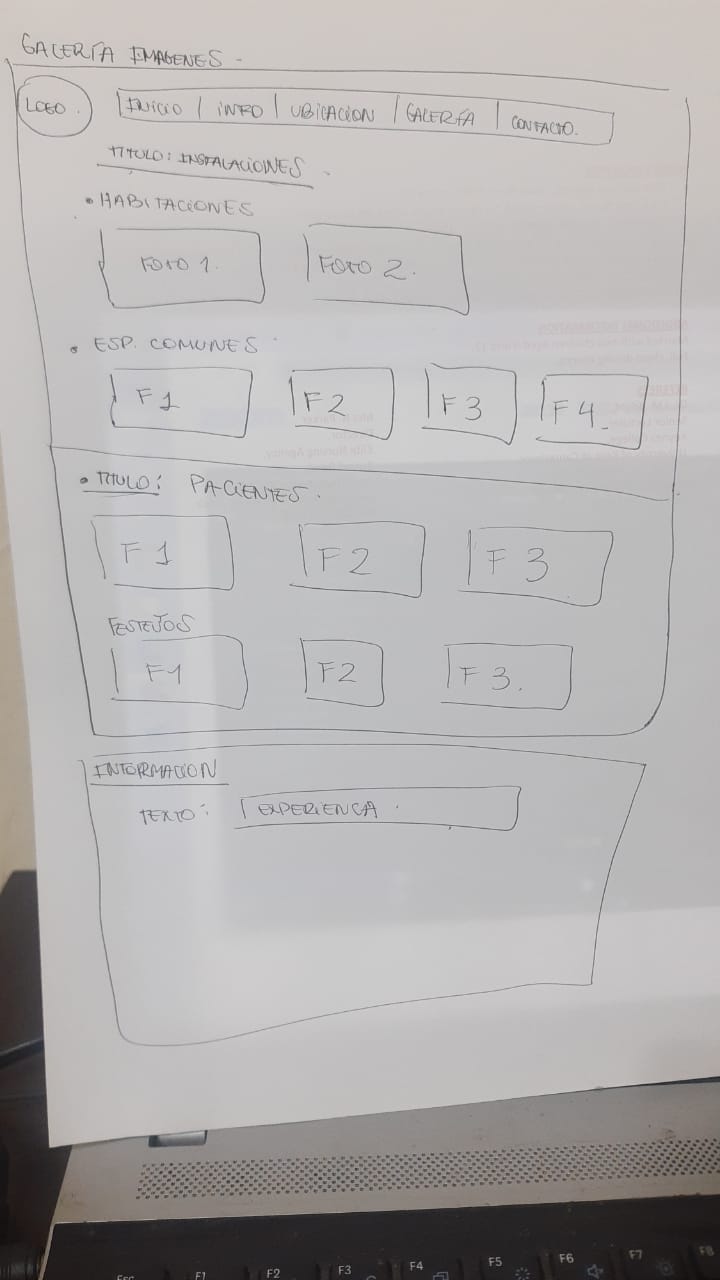 GALERÍA IMAGENES -
LOGO.
INICIO | INFO | UBICACION | GALERÍA | CONTACTO.
TITULO: INSTALACIONES.
• HABITACIONES
FOTO 1. FOTO 2.
• ESP. COMUNES
F1 F2 F3 F4
• TITULO: PACIENTES.
F1 F2 F3
FESTEJOS
F1 F2 F3.
INFORMACION
TEXTO: EXPERIENCA.
Esc F1 F2 F3 F4 F5 F6 F7 F8